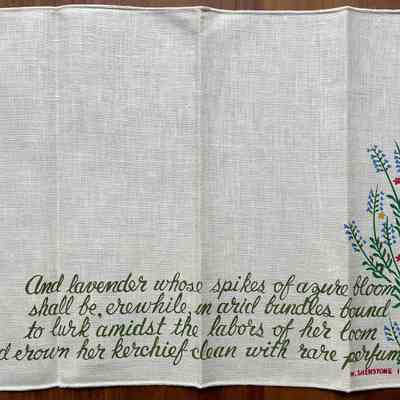 And lavender whose spikes of azure bloom
shall be, erewhile, in arid bundles bound
to lurk amidst the labors of her loom
d crown her kerchief clean with rare perfum
W. SHENSTONE 1